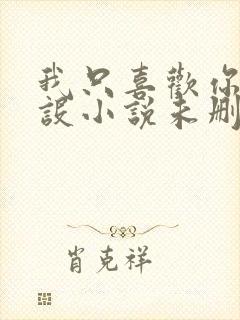 我只喜歡你
設小說未刪
肖克祥